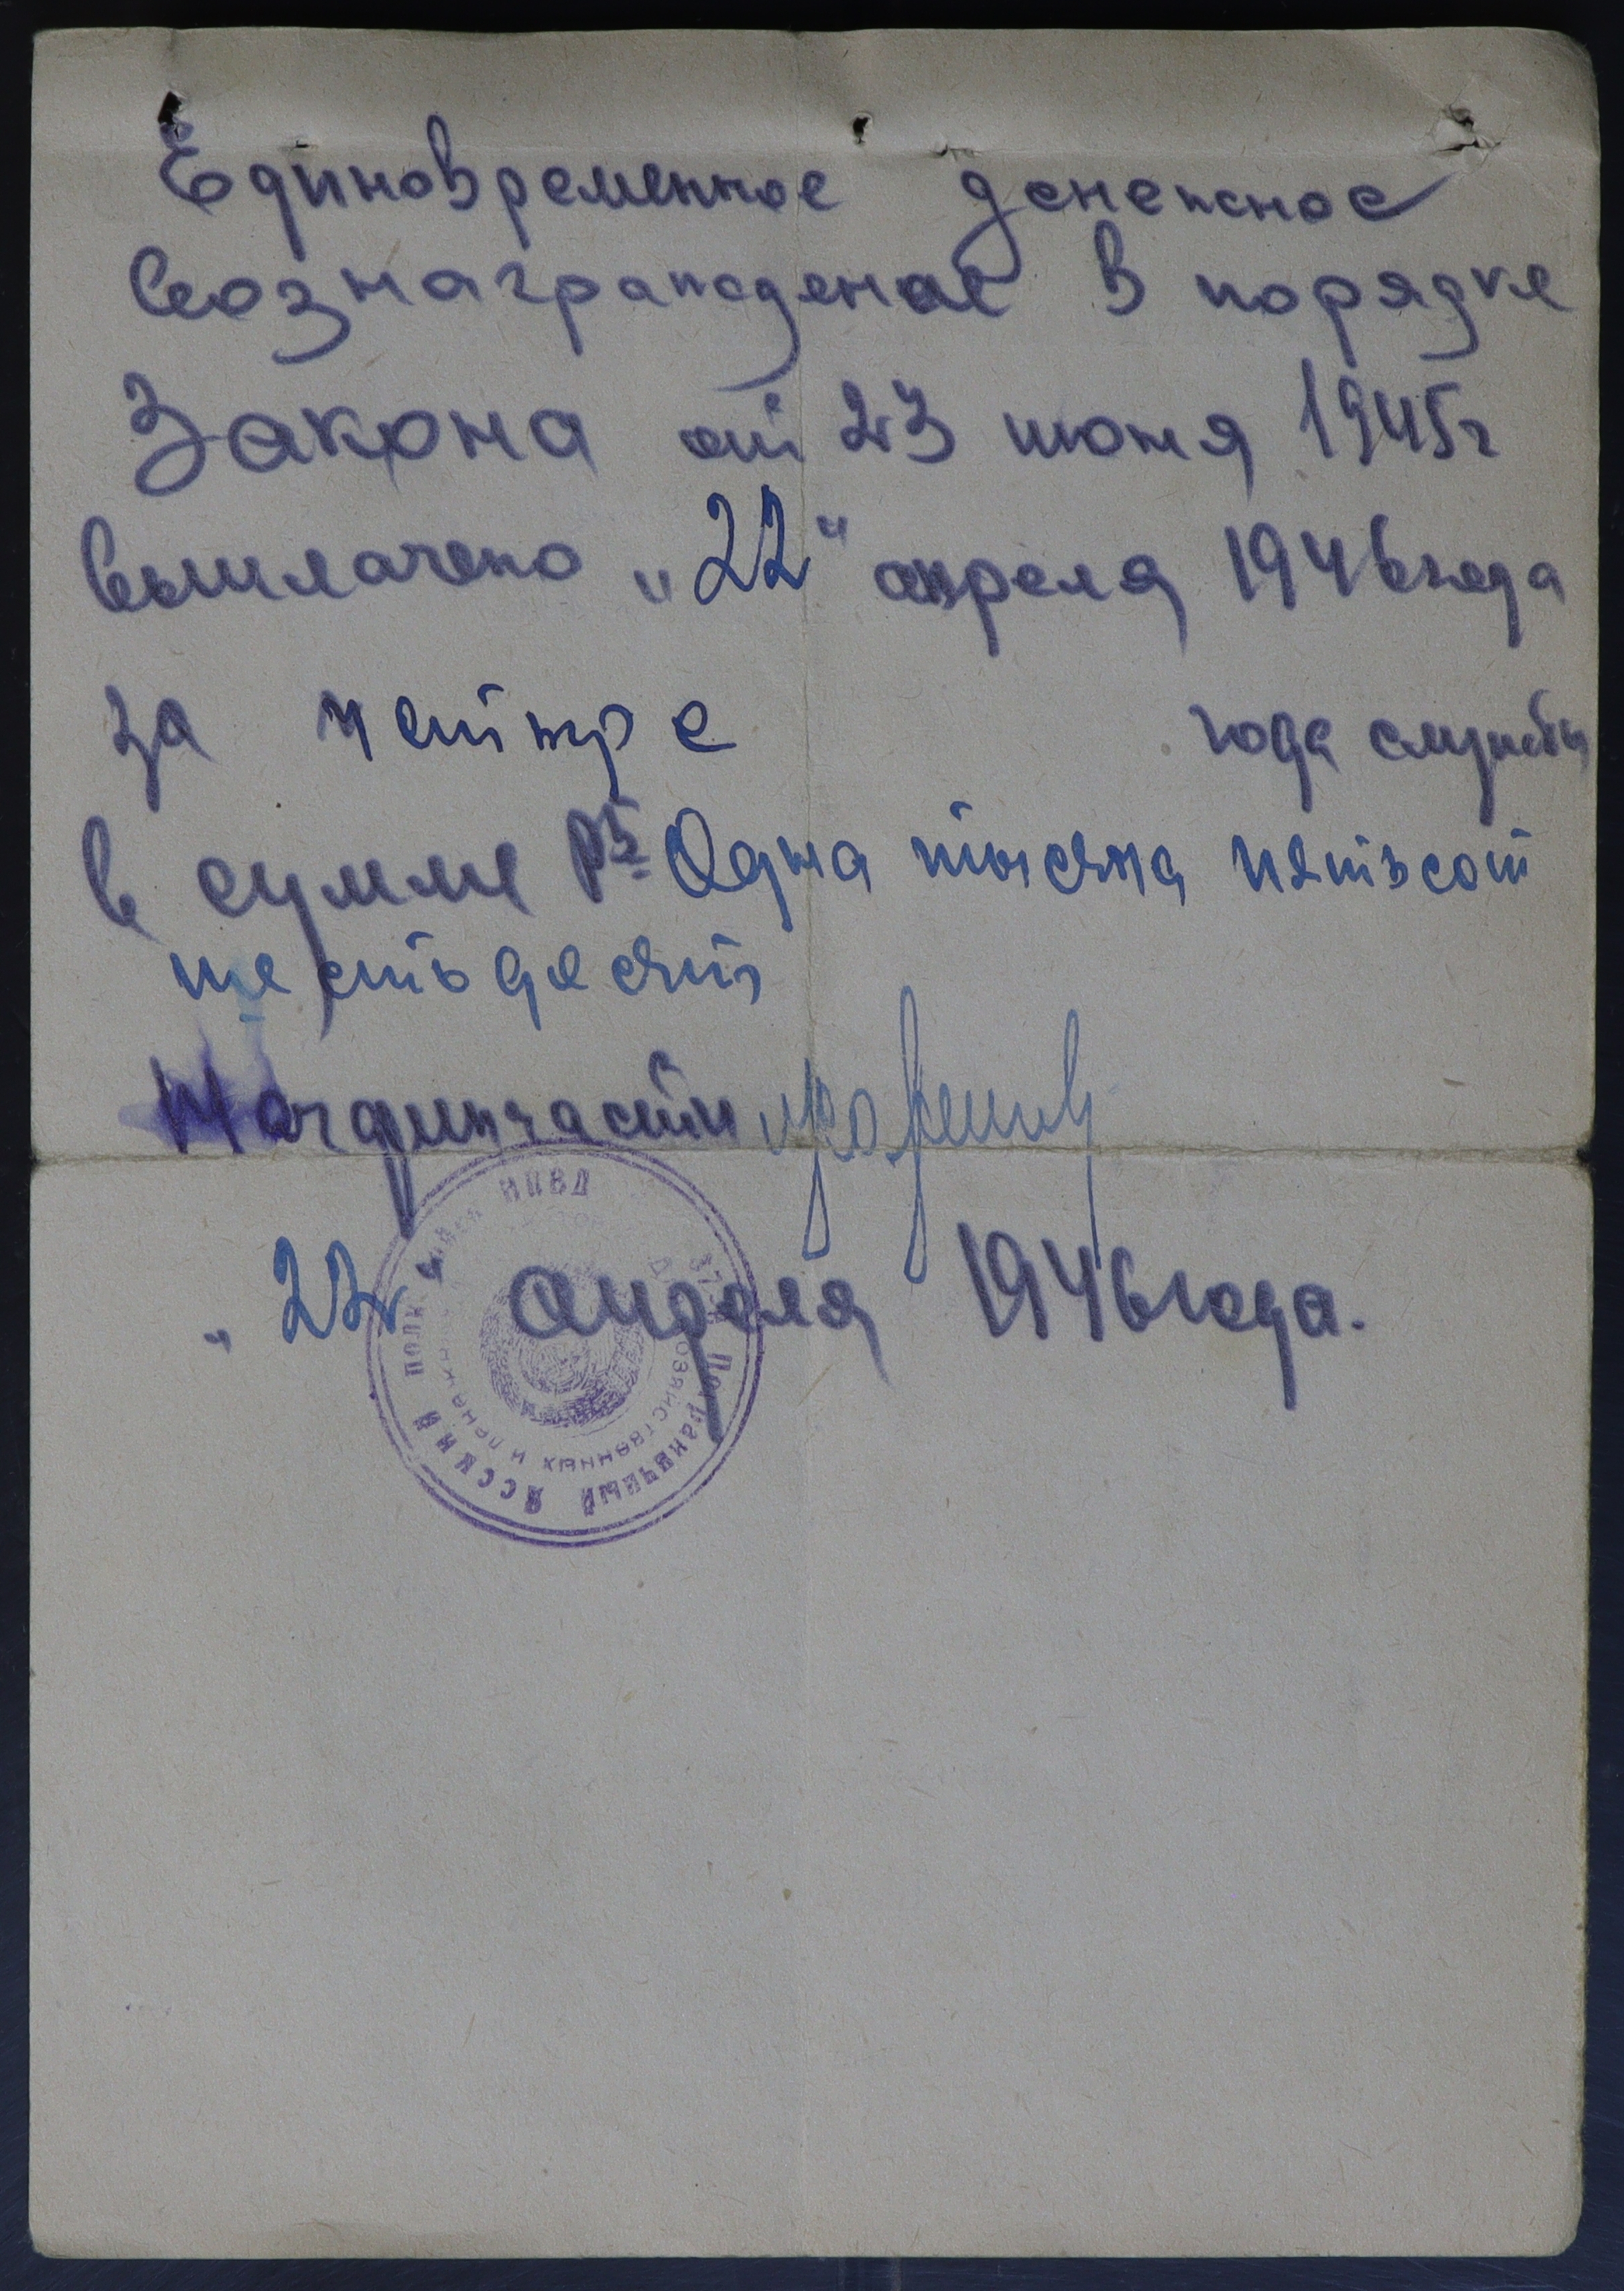 Единовременное денежное
вознаграждение в порядке
Закона от 23 июня 1945г
выплачено „22" апреля 1946 года
за четыре года службы
в сумме рб Одна тысяча пятьсот
шестьдесят
Начфинчасти
„22" апреля 1946 года.
Пограничный Ясский полк войск НКВД
хозяйственных и денежных